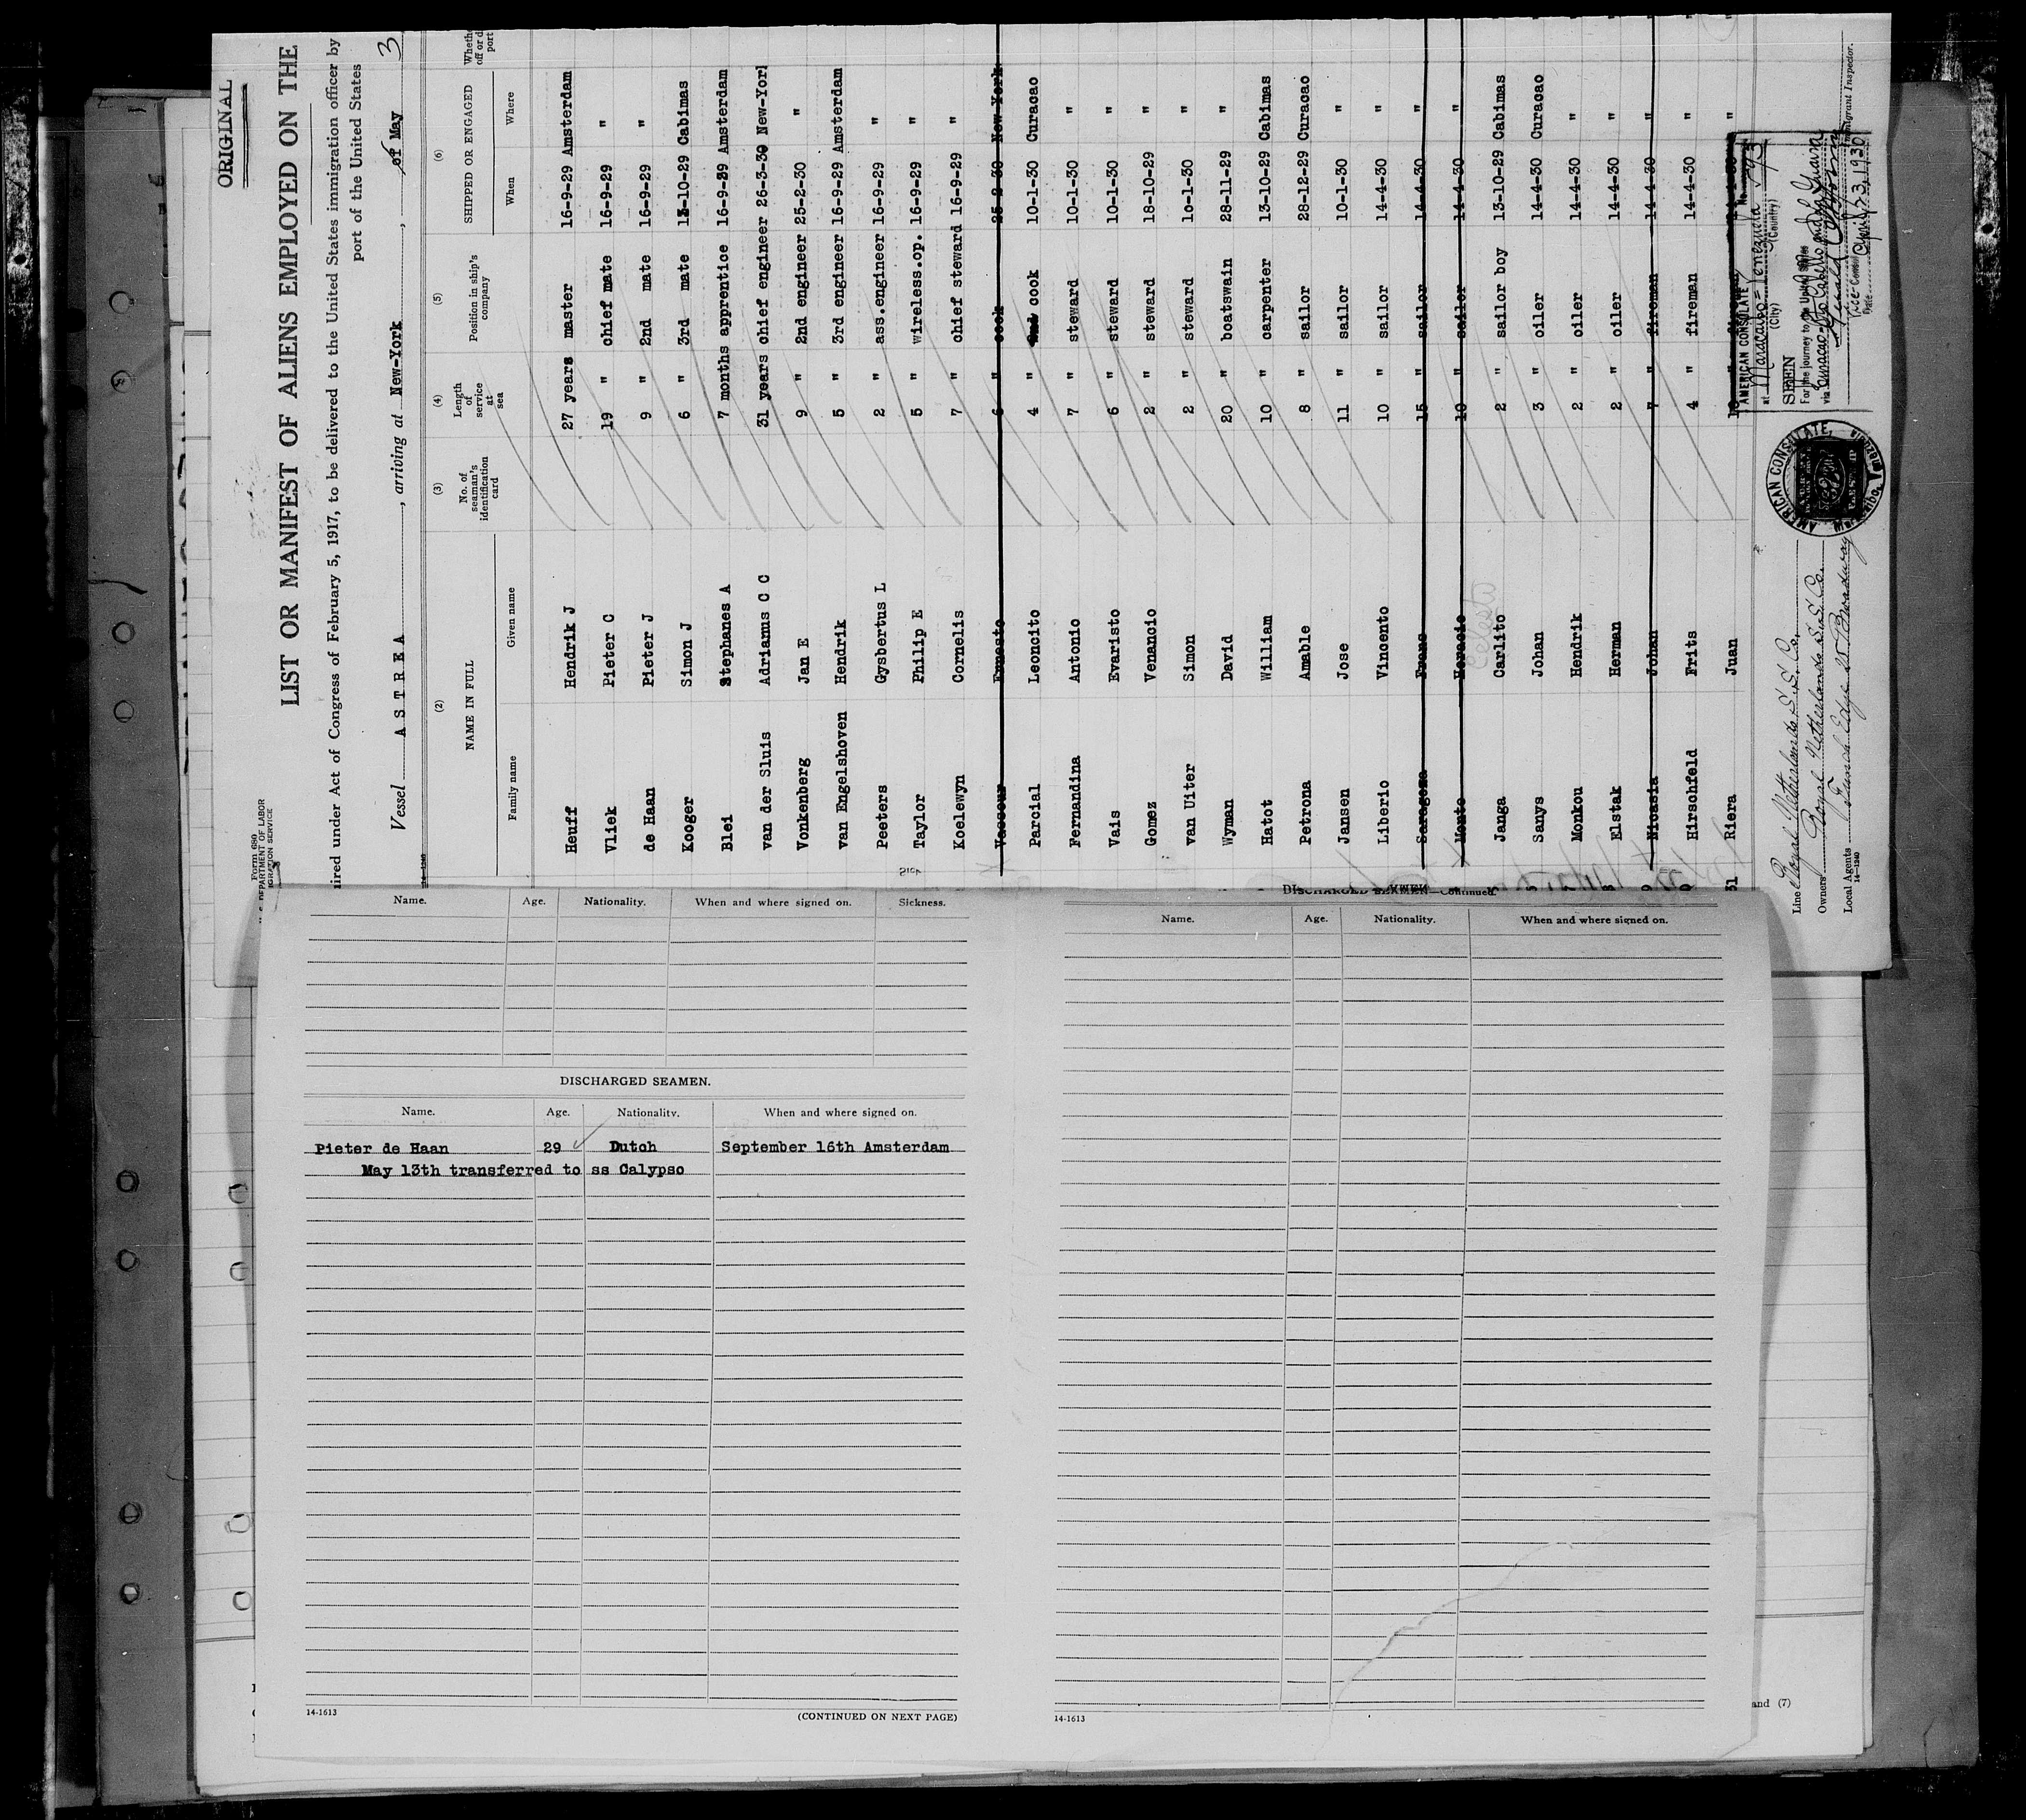 ORIGINAL
Form 680
U. S. DEPARTMENT OF LABOR
IGRATION SERVICE
LIST OR MANIFEST OF ALIENS EMPLOYED ON THE
ired under Act of Congress of February 5, 1917, to be delivered to the United States immigration officer by
port of the United States
Vessel A S T R E A , arriving at New-York , of May 3
(2) (3) (4) (5) (6)
NAME IN FULL No. of seaman's identification card Length of service at sea Position in ship's company SHIPPED OR ENGAGED
Family name Given name When Where
Heuff Hendrik J 27 years master 16-9-29 Amsterdam
Vliek Pieter C 19 " chief mate 16-9-29 "
de Haan Pieter J 9 " 2nd mate 16-9-29 "
Kooger Simon J 6 " 3rd mate 13-10-29 Cabimas
Blei Stephanes A 7 months apprentice 16-9-29 Amsterdam
van der Sluis Adrianus C C 31 years chief engineer 26-3-30 New-York
Vonkenberg Jan E 9 " 2nd engineer 25-2-30 "
van Engelshoven Hendrik 5 " 3rd engineer 16-9-29 Amsterdam
Peeters Gysbertus L 2 " ass.engineer 16-9-29 "
Taylor Philip E 5 " wireless.op. 16-9-29 "
Koelewyn Cornelis 7 " chief steward 16-9-29 "
Vasseur Ernesto 6 " cook 25-2-30 New-York
Parcial Leoncito 4 " 2nd cook 10-1-30 Curacao
Fernandina Antonio 7 " steward 10-1-30 "
Vais Evaristo 6 " steward 10-1-30 "
Gomez Venancio 2 " steward 18-10-29 "
van Uiter Simon 2 " steward 10-1-30 "
Wyman David 20 " boatswain 28-11-29 "
Hatot William 10 " carpenter 13-10-29 Cabimas
Petrona Amable 8 " sailor 28-12-29 Curacao
Jansen Jose 11 " sailor 10-1-30 "
Liberio Vincento 10 " sailor 14-4-30 "
Saragoza Frans 15 " sailor 14-4-30 "
Monte Horacio 10 " sailor 14-4-30 "
Janga Carlito 2 " sailor boy 13-10-29 Cabimas
Sanys Johan 3 " oiler 14-4-30 Curacao
Monkou Hendrik 2 " oiler 14-4-30 "
Elstak Herman 2 " oiler 14-4-30 "
Nicasia Johan 7 " fireman 14-4-30 "
Hirschfeld Frits 4 " fireman 14-4-30 "
31 Riera Juan
Line Royal Netherlands S.S. Co.
Owners Royal Netherlands S.S. Co.
Local Agents Funch Edye 25 Broadway
14-1240
AMERICAN CONSULATE
at Maracaibo - Venezuela No. 593
(City) (Country)
SEEN
For the journey to the United States
via Curacao, Pto Cabello and La Guaira
Vice Consul
Date April 23, 1930
Immigrant Inspector.
AMERICAN CONSULATE, Maracaibo, Venezuela
Name. Age. Nationality. When and where signed on. Sickness.
DISCHARGED SEAMEN.
Name. Age. Nationality. When and where signed on.
Pieter de Haan 29 Dutch September 16th Amsterdam
May 13th transferred to ss Calypso
14-1613 (CONTINUED ON NEXT PAGE)
DISCHARGED SEAMEN—Continued.
Name. Age. Nationality. When and where signed on.
14-1613
and (7)